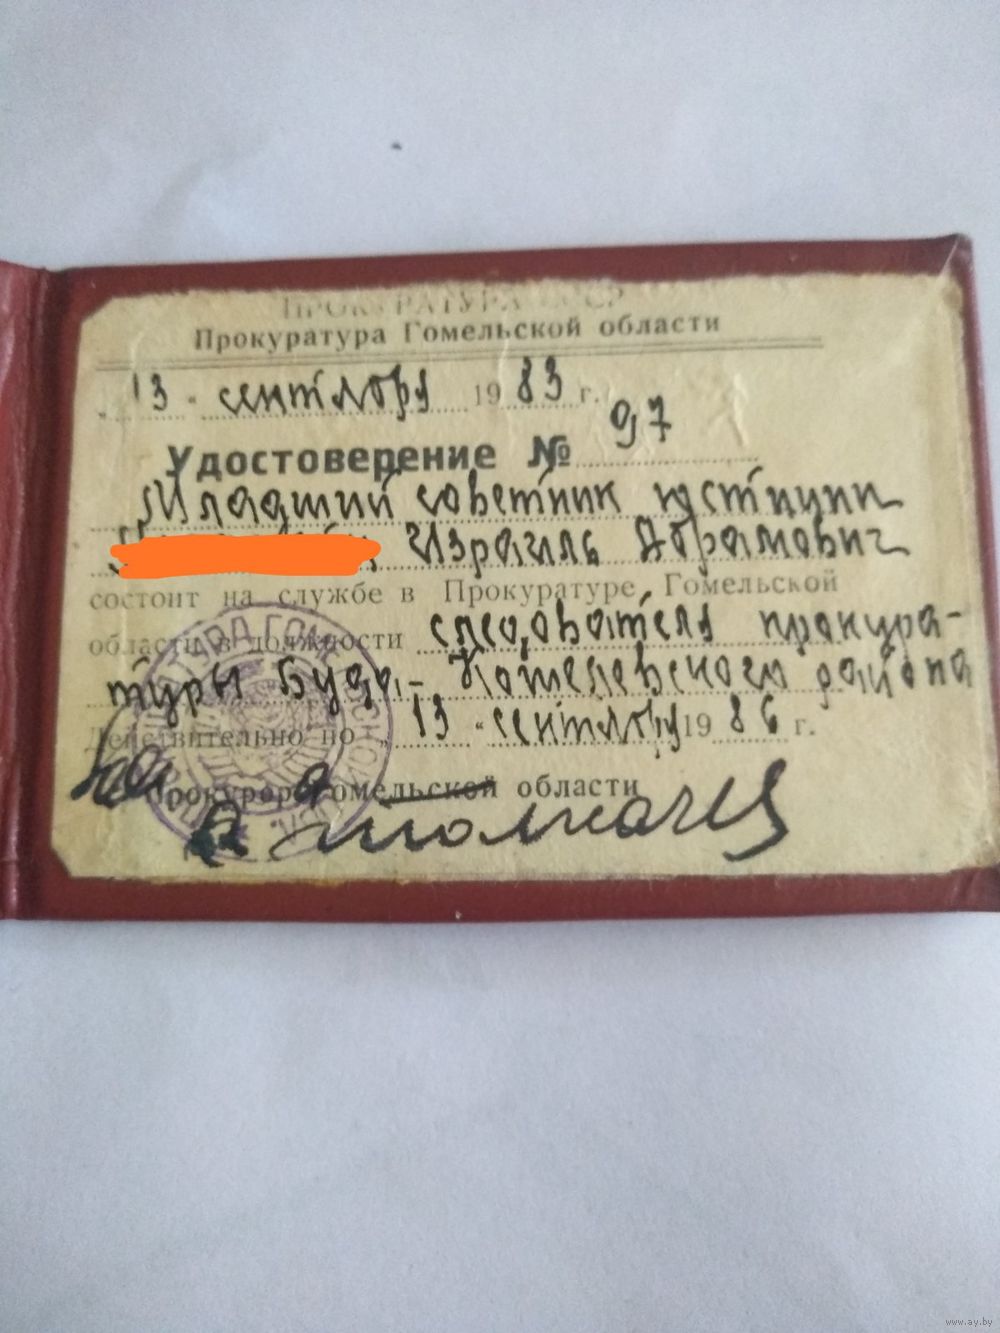 ПРОКУРАТУРА СССР
Прокуратура Гомельской области
„ 13 “ сентября 1983 г.
Удостоверение № 97
Младший советник юстиции
Израиль Абрамович
состоит на службе в Прокуратуре Гомельской
области в должности следователя прокура-
туры Буда-Кошелевского района
Действительно по „ 13 “ сентября 1986 г.
Прокурор Гомельской области
www.ay.by